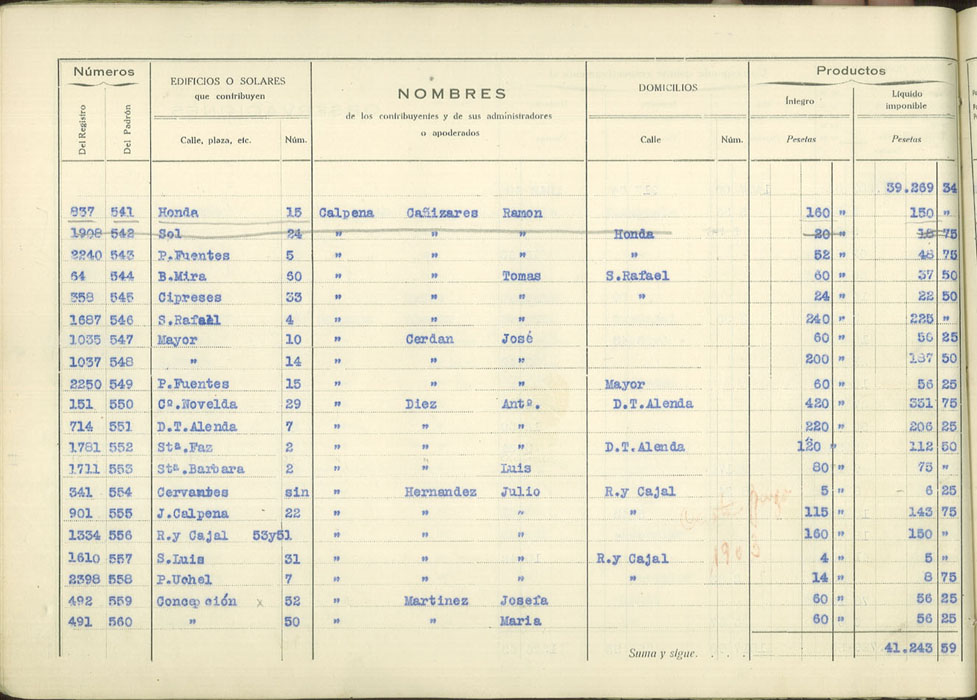 Números EDIFICIOS O SOLARES que contribuyen NOMBRES de los contribuyentes y de sus administradores o apoderados DOMICILIOS Productos
Del Registro Del Padrón Calle, plaza, etc. Núm. Calle Núm. Íntegro Pesetas Líquido imponible Pesetas
39.269 34
837 541 Honda 15 Calpena Cañizares Ramon 160 " 150 "
1908 542 Sol 24 " " " Honda 20 " 18 75
2240 543 P.Fuentes 5 " " " " 52 " 48 75
64 544 B.Mira 60 " " Tomas S.Rafael 60 " 37 50
358 545 Cipreses 33 " " " " 24 " 22 50
1687 546 S.Rafaél 4 " " " 240 " 225 "
1035 547 Mayor 10 " Cerdan José 60 " 56 25
1037 548 " 14 " " " 200 " 187 50
2250 549 P.Fuentes 15 " " " Mayor 60 " 56 25
151 550 Cº.Novelda 29 " Diez Antº. D.T.Alenda 420 " 351 75
714 551 D.T.Alenda 7 " " " 220 " 206 25
1781 552 Stª.Faz 2 " " " D.T.Alenda 120 " 112 50
1711 553 Stª.Barbara 2 " " Luis 80 " 75 "
341 554 Cervantes sin " Hernandez Julio R.y Cajal 5 " 6 25
901 555 J.Calpena 22 " " " " 115 " 143 75
1334 556 R.y Cajal 53y51 " " " 160 " 150 "
1610 557 S.Luis 31 " " " R.y Cajal 4 " 5 "
2398 558 P.Uchel 7 " " " " 14 " 8 75
492 559 Concepción x 52 " Martinez Josefa 60 " 56 25
491 560 " 50 " " Maria 60 " 56 25
Suma y sigue. . . . 41.243 59